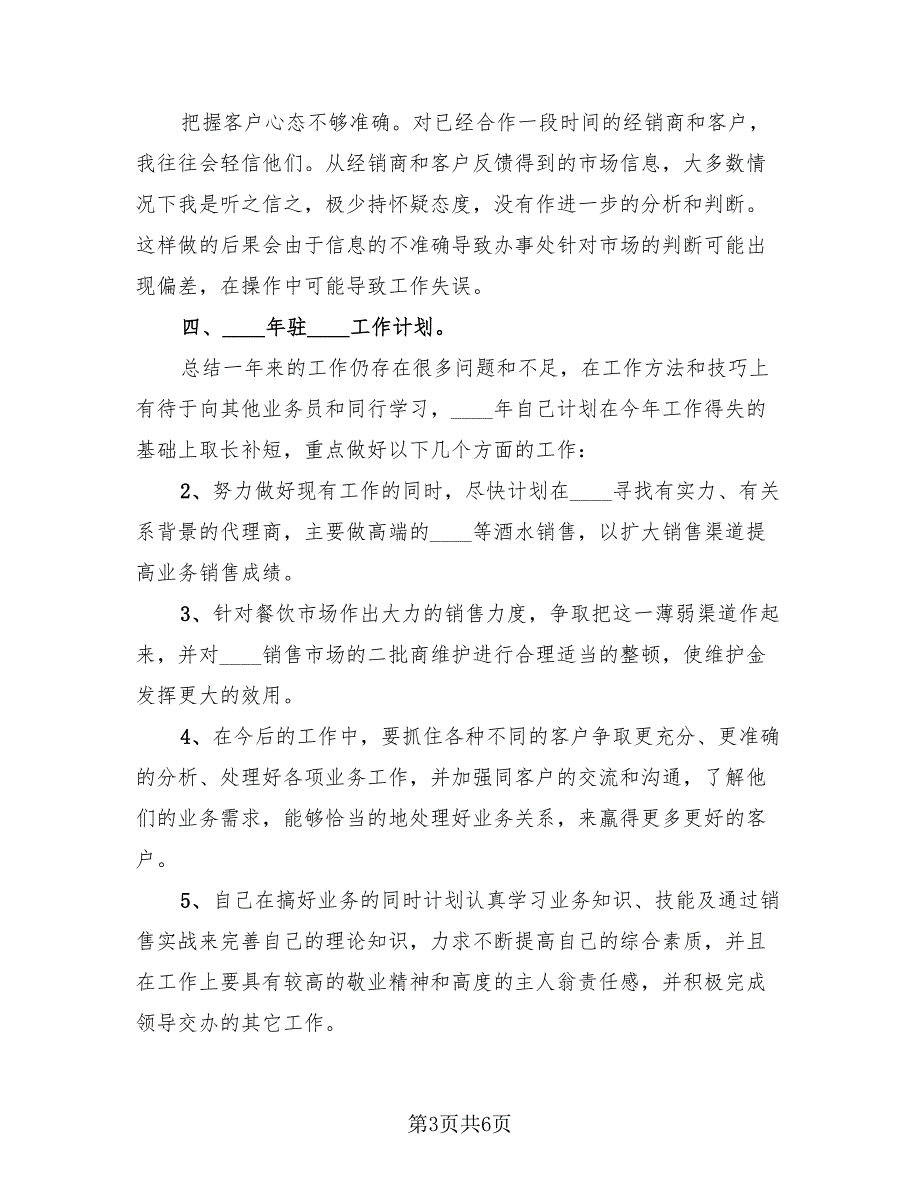 把握客户心态不够准确。对已经合作一段时间的经销商和客户，
我往往会轻信他们。从经销商和客户反馈得到的市场信息，大多数情
况下我是听之信之，极少持怀疑态度，没有作进一步的分析和判断。
这样做的后果会由于信息的不准确导致办事处针对市场的判断可能出
现偏差，在操作中可能导致工作失误。
四、____年驻____工作计划。
总结一年来的工作仍存在很多问题和不足，在工作方法和技巧上
有待于向其他业务员和同行学习，____年自己计划在今年工作得失的
基础上取长补短，重点做好以下几个方面的工作：
2、努力做好现有工作的同时，尽快计划在____寻找有实力、有关
系背景的代理商，主要做高端的____等酒水销售，以扩大销售渠道提
高业务销售成绩。
3、针对餐饮市场作出大力的销售力度，争取把这一薄弱渠道作起
来，并对____销售市场的二批商维护进行合理适当的整顿，使维护金
发挥更大的效用。
4、在今后的工作中，要抓住各种不同的客户争取更充分、更准确
的分析、处理好各项业务工作，并加强同客户的交流和沟通，了解他
们的业务需求，能够恰当的地处理好业务关系，来赢得更多更好的客
户。
5、自己在搞好业务的同时计划认真学习业务知识、技能及通过销
售实战来完善自己的理论知识，力求不断提高自己的综合素质，并且
在工作上要具有较高的敬业精神和高度的主人翁责任感，并积极完成
领导交办的其它工作。
第3页共6页